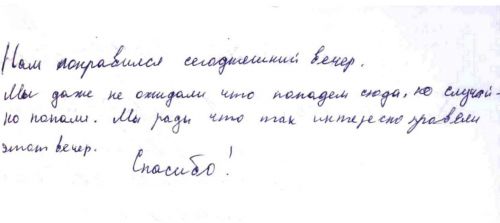 Нам понравился сегодняшний вечер.
Мы даже не ожидали что попадем сюда, но случай-
но попали. Мы рады что так интересно провели
этот вечер.
Спасибо!